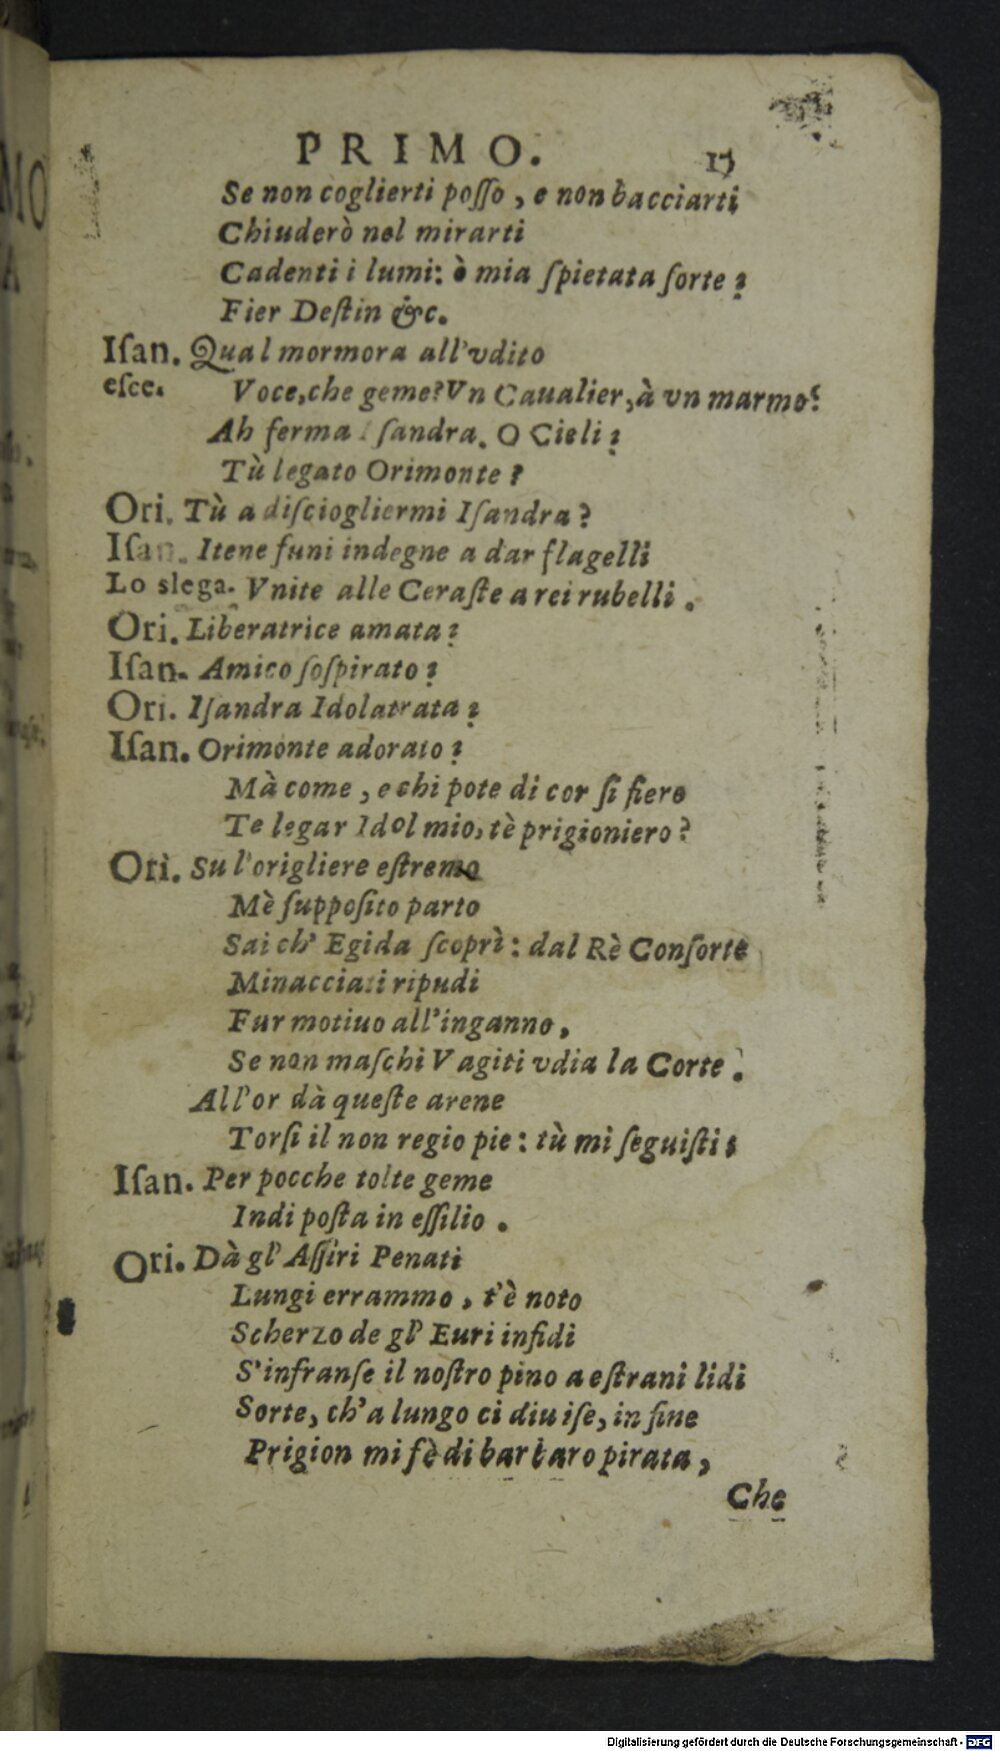 PRIMO. 17
Se non coglierti poſſo, e non bacciarti
Chiuderò nel mirarti
Cadenti i lumi: ò mia ſpietata ſorte?
Fier Deſtin &c.
Iſan. Qual mormora all'vdito
eſce. Voce, che geme? Vn Caualier, à vn marmo?
Ah ferma Iſandra. O Cieli?
Tù legato Orimonte?
Ori. Tù a diſciogliermi Iſandra?
Iſan. Itene funi indegne a dar flagelli
Lo slega. Vnite alle Ceraſte a rei rubelli.
Ori. Liberatrice amata?
Iſan. Amico ſoſpirato?
Ori. Iſandra Idolatrata?
Iſan. Orimonte adorato?
Mà come, e chi pote di cor ſi fiero
Te legar Idol mio, tè prigioniero?
Ori. Su l'origliere eſtremo
Mè ſuppoſito parto
Sai ch' Egida ſcoprì: dal Rè Conſorte
Minacciati ripudi
Fur motiuo all'inganno,
Se non maſchi Vagiti vdia la Corte.
All'or dà queſte arene
Torſi il non regio pie: tù mi ſeguiſti:
Iſan. Per pocche tolte geme
Indi poſta in eſſilio.
Ori. Dà gl' Aſſiri Penati
Lungi errammo, t'è noto
Scherzo de gl' Euri infidi
S'infranſe il noſtro pino a eſtrani lidi
Sorte, ch'a lungo ci diuiſe, in fine
Prigion mi fè di barbaro pirata,
Che
Digitalisierung gefördert durch die Deutsche Forschungsgemeinschaft - DFG